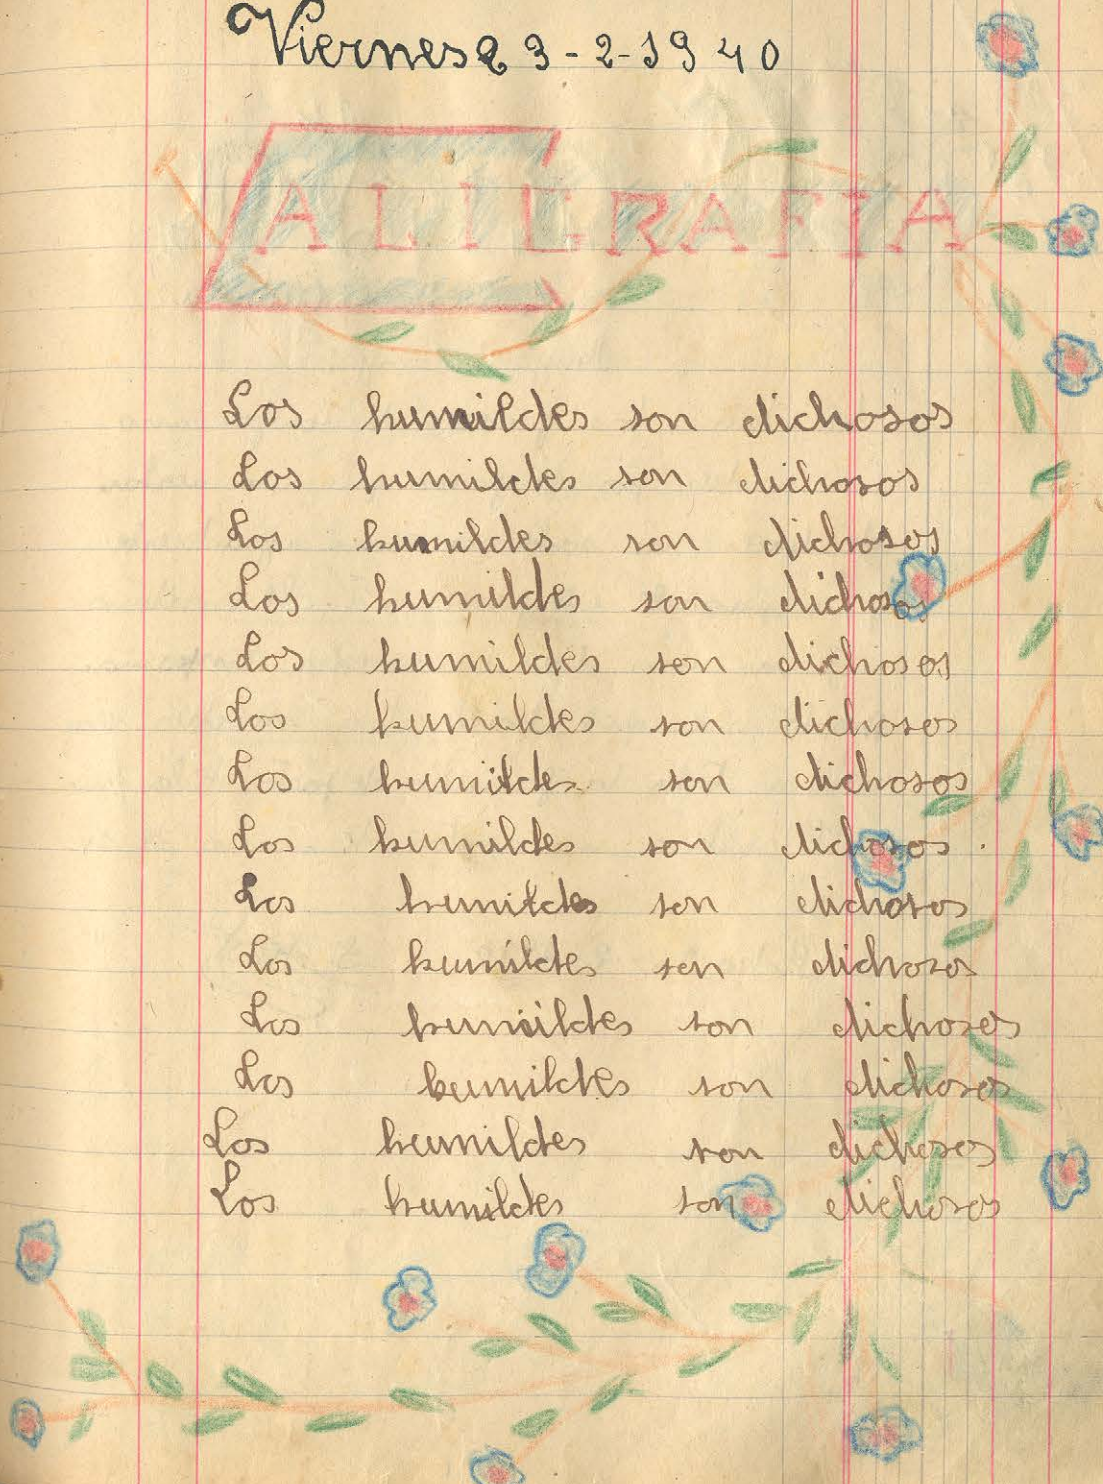 Viernes 23-2-1940
CALIGRAFIA
Los humildes son dichosos
Los humildes son dichosos
Los humildes son dichosos
Los humildes son dichosos
Los humildes son dichosos
Los humildes son dichosos
Los humildes son dichosos
Los humildes son dichosos.
Los humildes son dichosos
Los humildes son dichosos
Los humildes son dichosos
Los humildes son dichosos
Los humildes son dichosos
Los humildes son dichosos